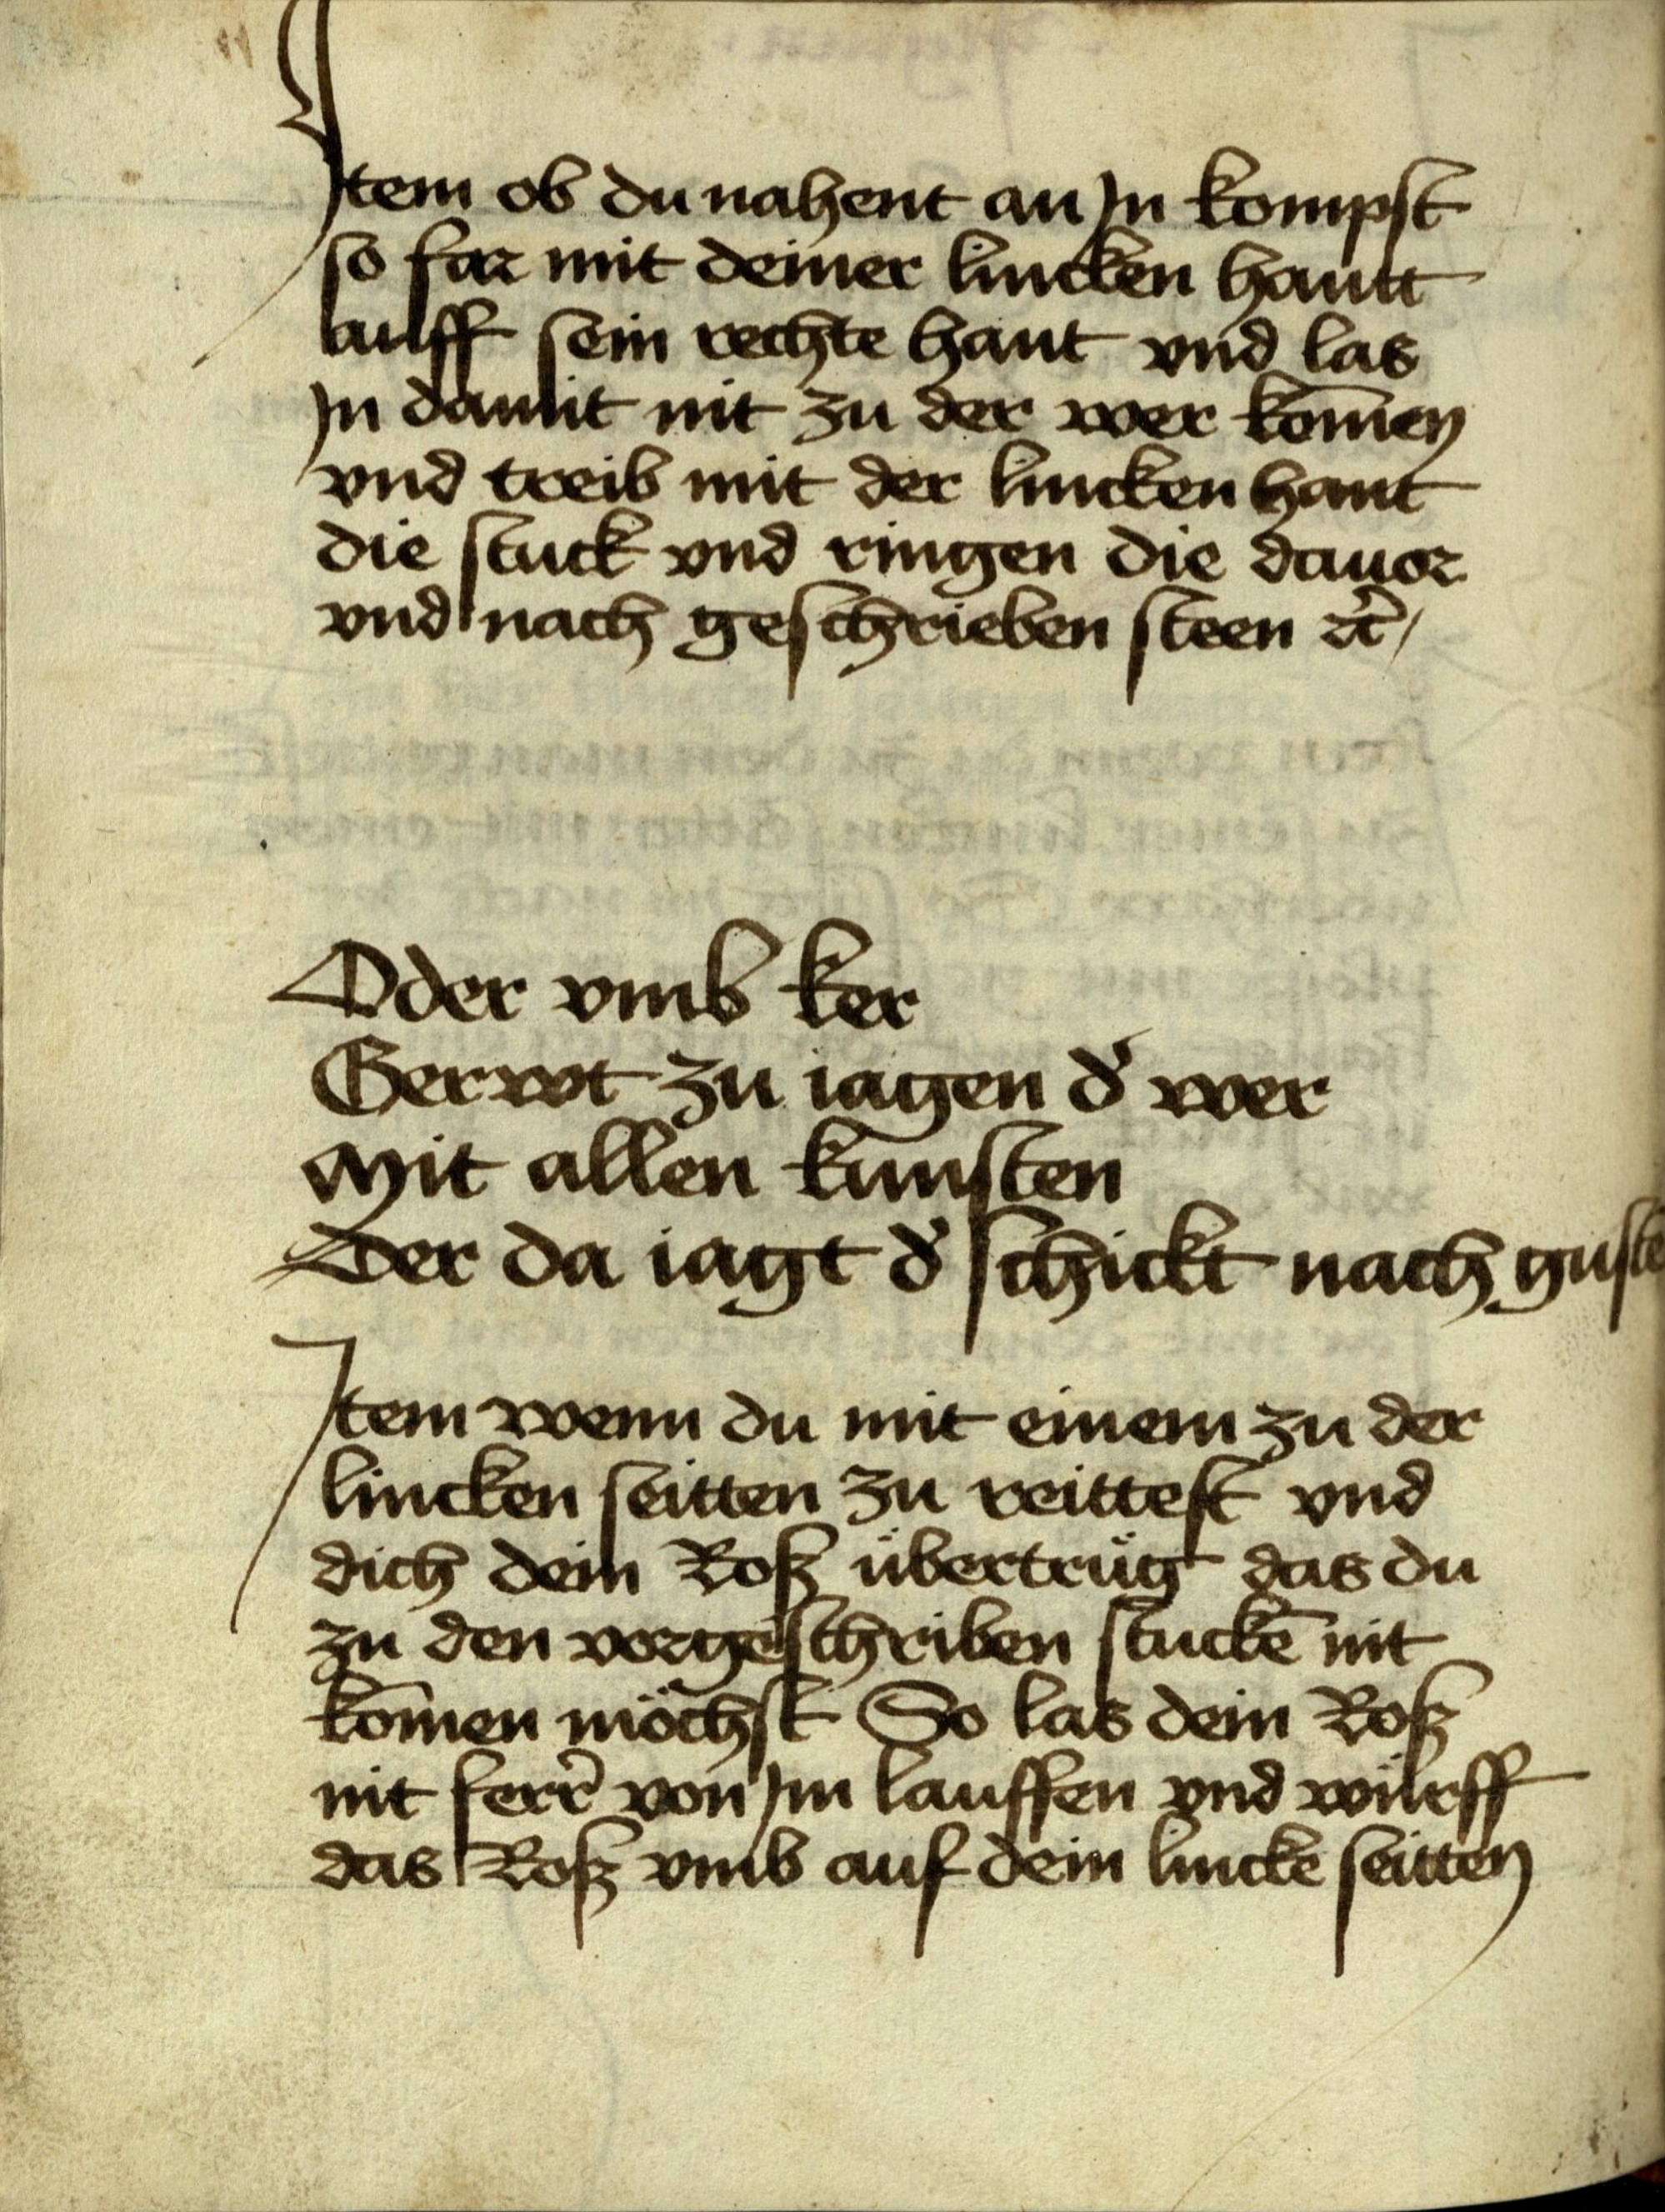 Item ob du nahent an In kompst
so far mit deiner lincken hantt
auff sein rechte hant vnd las
In damit nit zu der wer kom̄en
vnd treib mit der lincken hant
die stuck vnd ringen die dauor
vnd nach geschrieben steen ꝛc̃
Oder vmb ker
Gerwt zu iagen d᷑ wer
Mit allen kunsten
Der da iagt d᷑ schickt nach guste
Item wenn du mit einem zu der
lincken seitten zu reittest vnd
dich dein Roß übertrüg das du
zu den vorgeschriben stuckē nit
kom̄en möchst So las dein Roß
nit ferr̃ von Im lauffen vnd würff
das Roß vmb auf dein lincke seitten